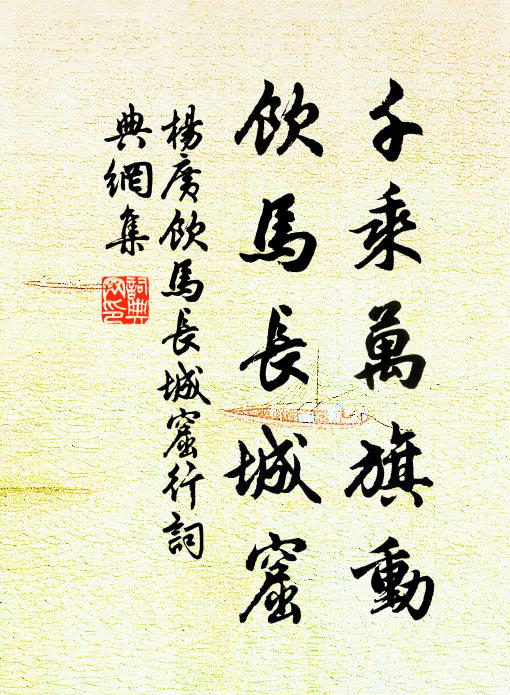 千乘萬旗動
飲馬長城窟
楊廣飲馬長城窟行詞
典網集
詞典